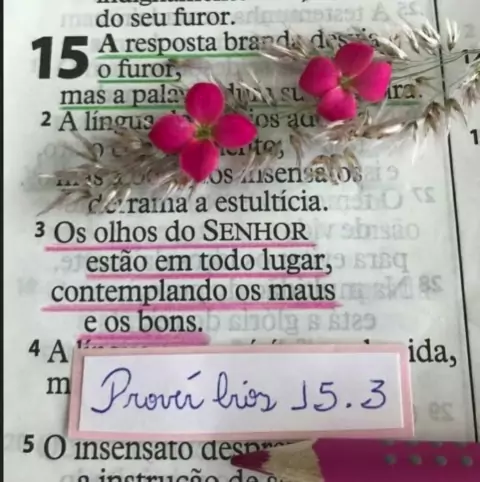 do seu furor.
15 A resposta branda desvia
o furor,
mas a palavra dura su ira.
2 A língua dos sábios ad
to,
mas a boca dos insensatos
derrama a estultícia.
3 Os olhos do SENHOR
estão em todo lugar,
contemplando os maus
e os bons.
4 A ida,
m
Provérbios 15.3
5 O insensato
a instrução de